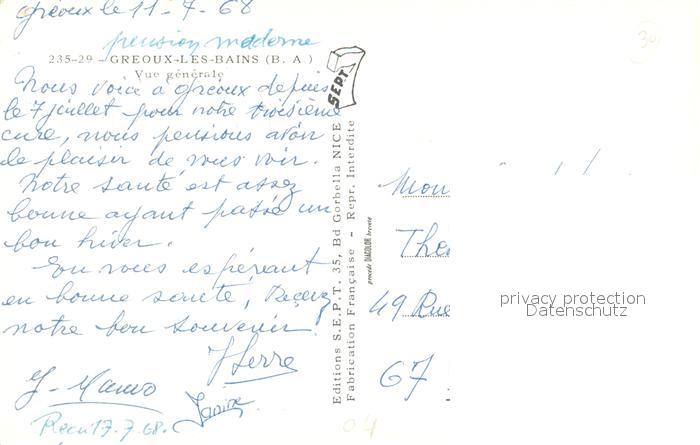 Gréoux le 11-7-68
pension moderne
235-29 - GREOUX-LES-BAINS (B. A.)
Vue générale
Nous voici à Gréoux depuis
le 7 juillet pour notre troisième
cure, nous pensions avoir
le plaisir de vous voir.
Notre santé est assez
bonne ayant passé un
bon hiver.
En vous espérant
en bonne santé, Recevez
notre bon souvenir.
J Serre
Janine
Reçu 17.7.68.
SEPT
Editions S.E.P.T. 35, Bd Gorbella NICE
Fabrication Française - Repr. Interdite
procédé DIACOLOR breveté
Mon
The
49 Rue
67
privacy protection
Datenschutz
04
30